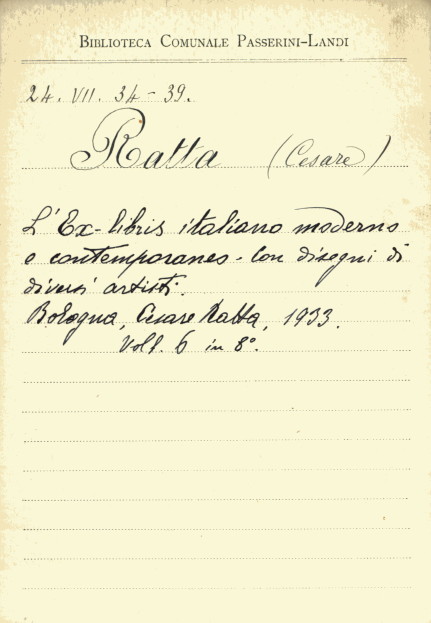 BIBLIOTECA COMUNALE PASSERINI-LANDI
24. VII. 34-39.
Ratta (Cesare)
L'Ex-libris italiano moderno
e contemporaneo - Con disegni di
diversi artisti.
Bologna, Cesare Ratta, 1933.
Voll. 6 in 8°.